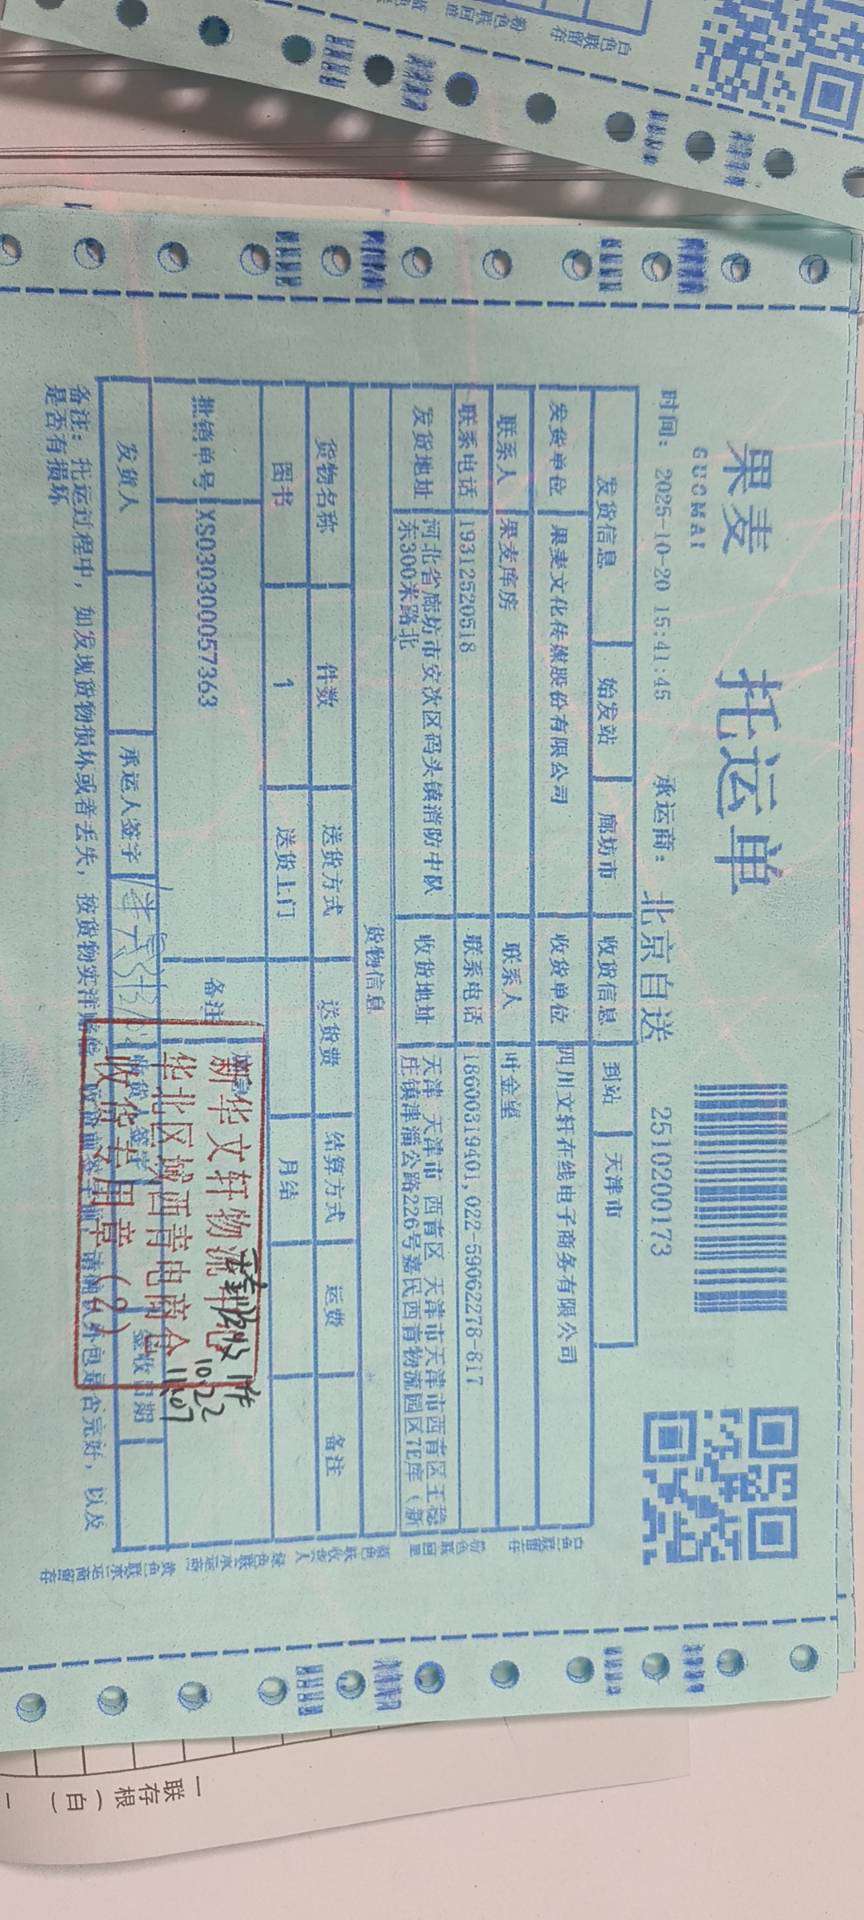 果麦
GUOMAI
托运单
时间：2025-10-20 15:41:45 承运商：北京自送 2510200173
发货信息 始发站 廊坊市 收货信息 到站 天津市
发货单位 果麦文化传媒股份有限公司 收货单位 四川文轩在线电子商务有限公司
联系人 果麦库房 联系人 叶金望
联系电话 19312520518 联系电话 18600319401,022-59062278-817
发货地址 河北省廊坊市安次区码头镇消防中队东300米路北 收货地址 天津 天津市 西青区 天津市天津市西青区王稳庄镇津淄公路226号嘉民西青物流园区7E库（新
货物信息
货物名称 件数 送货方式 送货费 结算方式 运费 备注
图书 1 送货上门 月结
批销单号 XS030300057363 备注
发货人 承运人签字 收货人签字 签收日期
备注：托运过程中，如发现货物损坏或者丢失，按货物实洋赔偿 请确认外包是否完好，以及
是否有损坏
新华文轩物流
华北区域西青电商仓
收货专用章（2）
10.22
11:07
白色联留存
粉色联回单
蓝色联收货人
绿色联承运商
黄色联承运商留存
白色联留存
粉色联回单
一联
存根
（白）